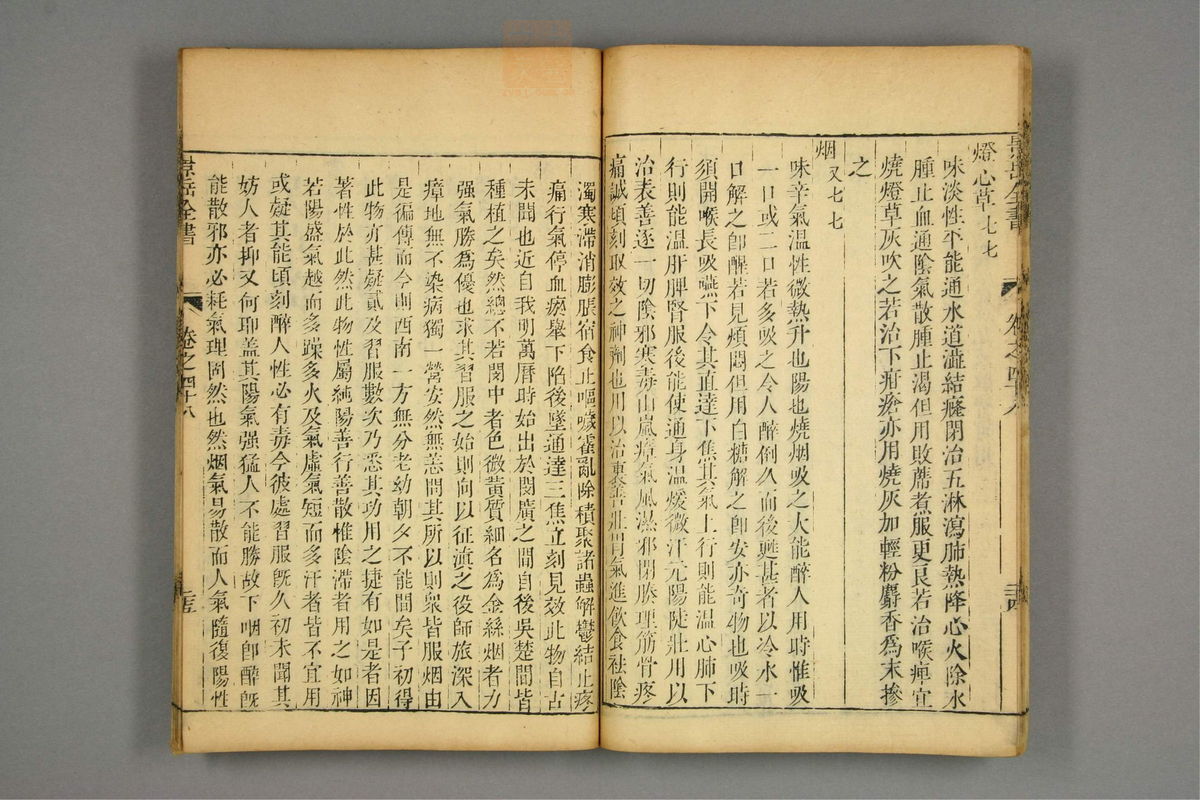 景岳全書 卷之四十八 二十四
燈心草 七七
味淡性平能通水道澁結癃閉治五淋瀉肺熱降心火除水
腫止血通陰氣散腫止渴但用敗蓆煮服更良若治喉痺宜
燒燈草灰吹之若治下疳瘡亦用燒灰加輕粉麝香爲末摻
之
烟 又七七
味辛氣温性微熱升也陽也燒烟吸之大能醉人用時惟吸
一口或二口若多吸之令人醉倒久而後甦甚者以冷水一
口解之即醒若見煩悶但用白糖解之即安亦奇物也吸時
須開喉長吸嚥下令其直達下焦其氣上行則能温心肺下
行則能温肝脾腎服後能使通身温煖微汗元陽陡壯用以
治表善逐一切陰邪寒毒山嵐瘴氣風濕邪閉腠理筋骨疼
痛誠頃刻取效之神劑也用以治裏善壯胃氣進飲食袪陰
濁寒滯消膨脹宿食止嘔噦霍亂除積聚諸蟲解鬱結止疼
痛行氣停血瘀舉下陷後墜通達三焦立刻見效此物自古
未聞也近自我明萬曆時始出於閩廣之間自後吳楚間皆
種植之矣然總不若閩中者色微黃質細名爲金絲烟者力
强氣勝爲優也求其習服之始則向以征滇之役師旅深入
瘴地無不染病獨一營安然無恙問其所以則衆皆服烟由
是徧傳而今則西南一方無分老幼朝夕不能間矣予初得
此物亦甚疑貳及習服數次乃悉其功用之捷有如是者因
著性於此然此物性屬純陽善行善散惟陰滯者用之如神
若陽盛氣越而多躁多火及氣虛氣短而多汗者皆不宜用
或疑其能頃刻醉人性必有毒今彼處習服旣久初未聞其
妨人者抑又何耶蓋其陽氣强猛人不能勝故下咽即醉旣
能散邪亦必耗氣理固然也然烟氣易散而人氣隨復陽性
景岳全書 卷之四十八 二十五